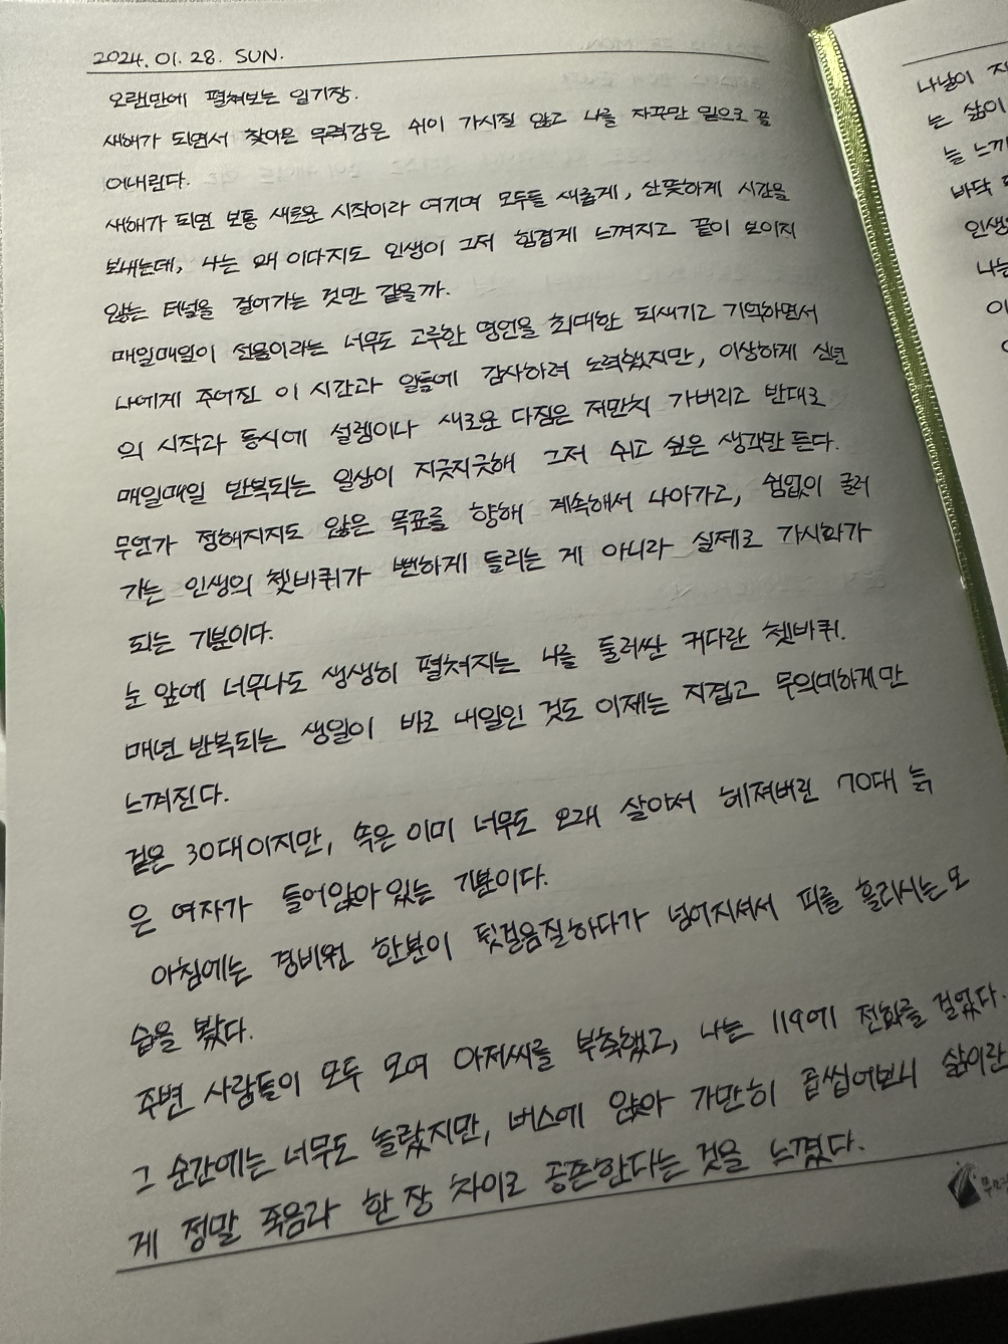 2024. 01. 28. SUN.
오랜만에 펼쳐보는 일기장.
새해가 되면서 찾아온 무력감은 쉬이 가시질 않고 나를 자꾸만 밑으로 끌
어내린다.
새해가 되면 보통 새로운 시작이라 여기며 모두들 새롭게, 산뜻하게 시간을
보내는데, 나는 왜 이다지도 인생이 그저 힘겹게 느껴지고 끝이 보이지
않는 터널을 걸어가는 것만 같을까.
매일매일이 선물이라는 너무도 고루한 명언을 최대한 되새기고 기억하면서
나에게 주어진 이 시간과 일들에 감사하려 노력했지만, 이상하게 신년
의 시작과 동시에 설렘이나 새로운 다짐은 저만치 가버리고 반대로
매일매일 반복되는 일상이 지긋지긋해 그저 쉬고 싶은 생각만 든다.
무언가 정해지지도 않은 목표를 향해 계속해서 나아가고, 쉼없이 굴러
가는 인생의 쳇바퀴가 뻔하게 들리는 게 아니라 실제로 가시화가
되는 기분이다.
눈 앞에 너무나도 생생히 펼쳐지는 나를 둘러싼 커다란 쳇바퀴.
매년 반복되는 생일이 바로 내일인 것도 이제는 지겹고 무의미하게만
느껴진다.
겉은 30대이지만, 속은 이미 너무도 오래 살아서 헤져버린 70대 늙
은 여자가 들어앉아 있는 기분이다.
아침에는 경비원 한분이 뒷걸음질하다가 넘어지셔서 피를 흘리시는 모
습을 봤다.
주변 사람들이 모두 모여 아저씨를 부축했고, 나는 119에 전화를 걸었다.
그 순간에는 너무도 놀랐지만, 버스에 앉아 가만히 곱씹어보니 삶이란
게 정말 죽음과 한 장 차이로 공존한다는 것을 느꼈다.
나날이
는 삶이
늘 느끼
바닥
인생
나는
이